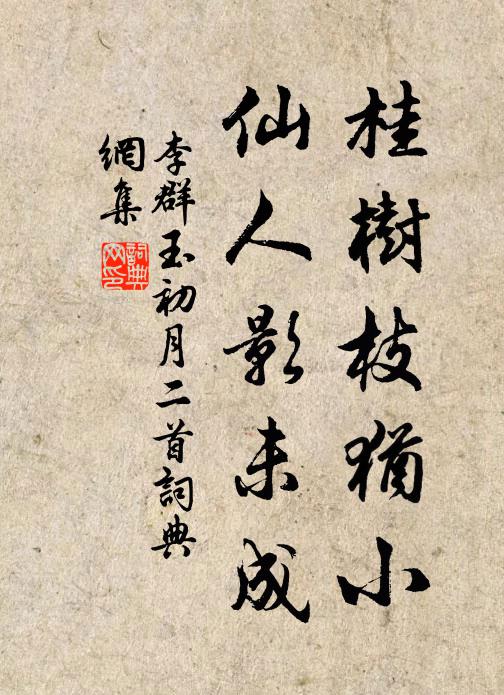 桂樹枝猶小
仙人影未成
李群玉初月二首詞典
網集
詞典
网印